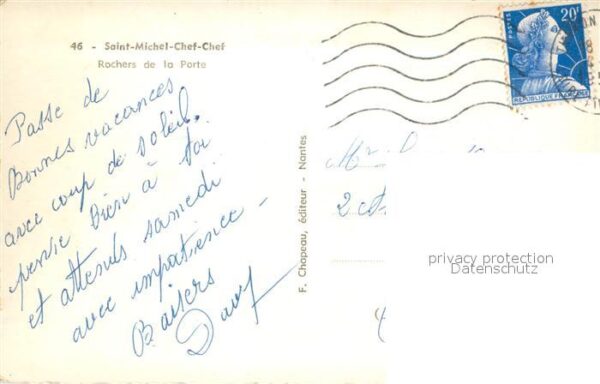 46 - Saint-Michel-Chef-Chef
Rochers de la Porte
Passe de
Bonnes vacances
avec coup de soleil.
pense bien à toi
et attends samedi
avec impatience -
Baisers
F. Chapeau, éditeur - Nantes
POSTES
20F
REPUBLIQUE FRANÇAISE
privacy protection
Datenschutz